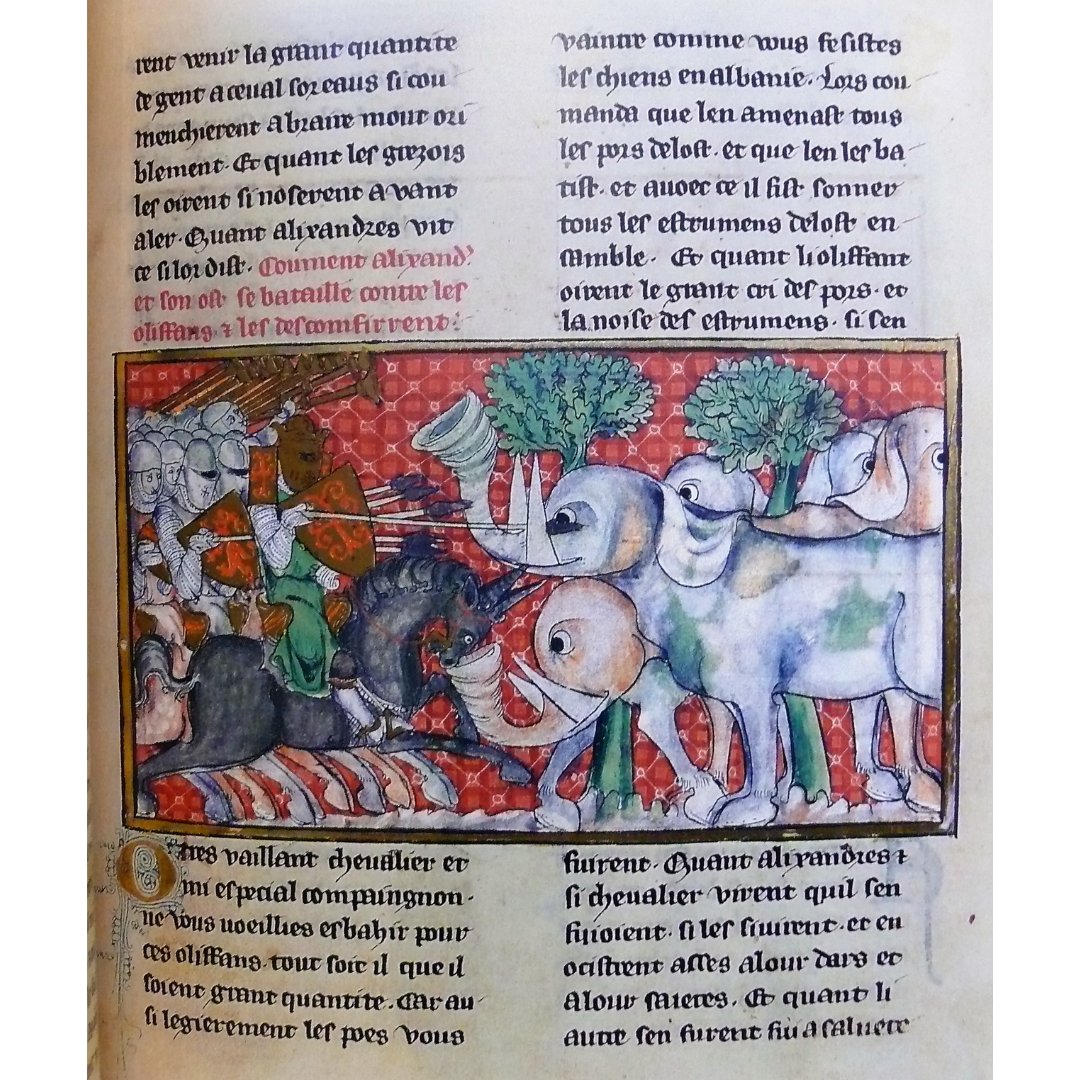 rent venir la grant quantite
de gent a ceual sor eaus si cou
menchierent a braire mout ori
blement. Et quant les grezois
les oirent si noserent avant
aler. Quant alixandres vit
ce si lor dist. Coument alixand'
et son ost se bataille contre les
oliffans ⁊ les descomfirrent.
O tres vaillant chevalier et
mi especial compaingnon.
ne vous uoeillies esbahir pour
ces oliffans. tout soit il que il
soient grant quantite. Car au
si legierement les poes vous
vaintre comme vous fesistes
les chiens en albanie. Lors cou
manda que len amenast tous
les pors delost. et que len les ba
tist. et avoec ce il fist sonner
tous les estrumens delost en
samble. Et quant li oliffant
oirent le grant cri des pors. et
la noise des estrumens. si sen
fuirent. Quant alixandres ⁊
si chevalier virent quil sen
fuioient. si les siuirent. et en
ocistrent asses a lour dars et
a lour saietes. Et quant li
autre sen furent fui a salvete